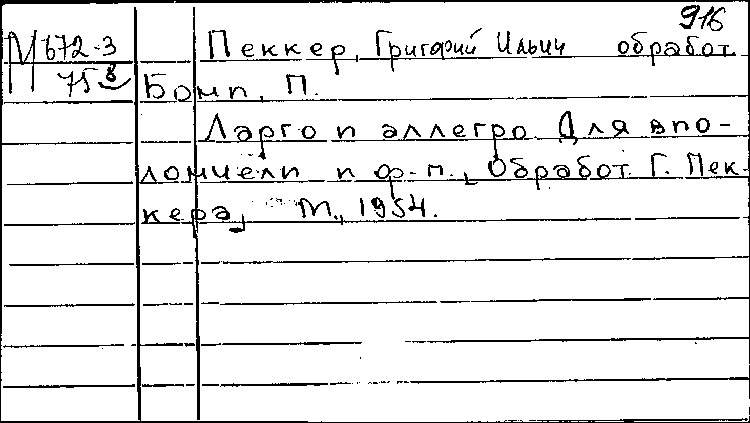 916
М 672-3
758
Пеккер, Григорий Ильич обработ.
Бони, П.
Ларго и аллегро. Для вио-
лончели и ф-п., Обработ. Г. Пек-
кера, М., 1954.